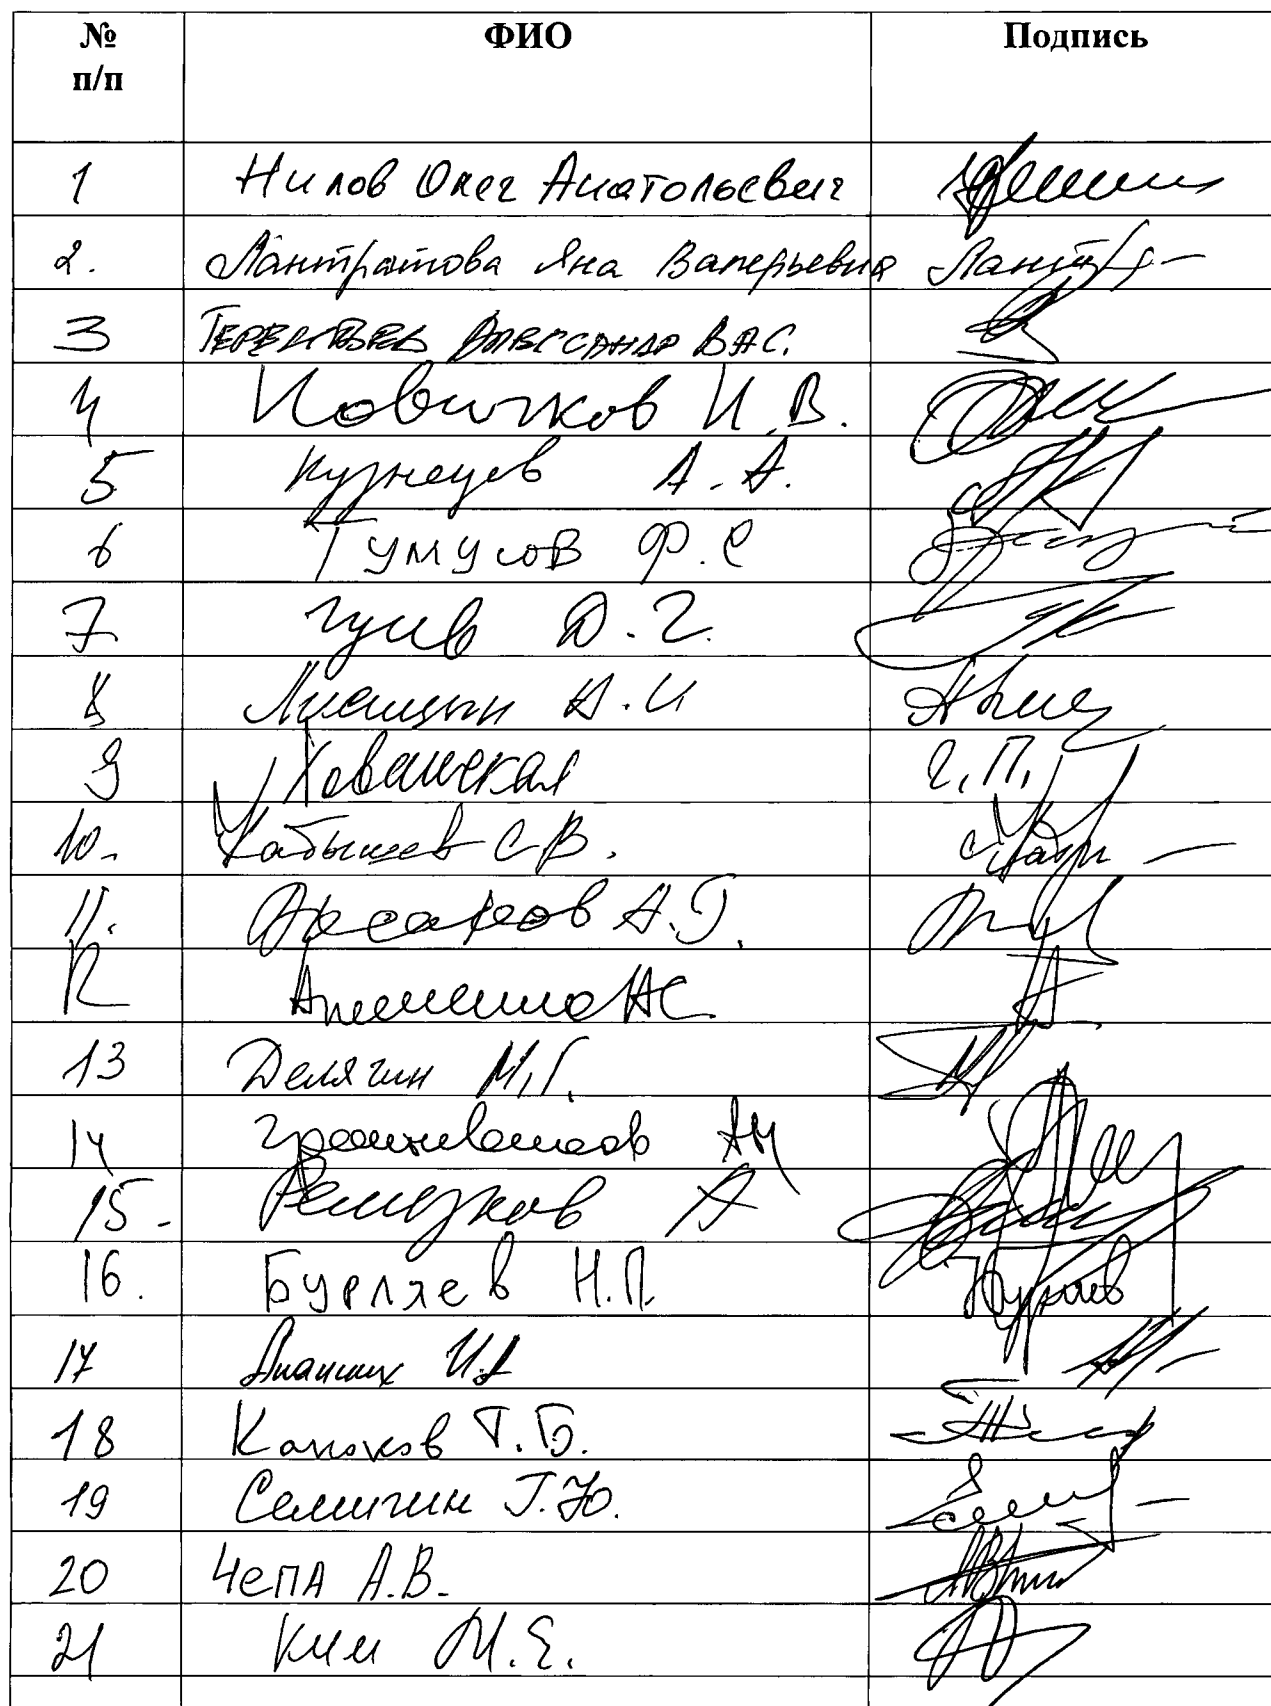 № п/п ФИО Подпись
1 Нилов Олег Анатольевич
2. Лантратова Яна Валерьевна
3 Терентьев Александр Вас.
4 Новичков Н.В.
5 Кузнецов А.А.
6 Тумусов Ф.С
7 Гусев Д.Г.
8 Лисицын А.И
9 Хованская Г.П.
10. Кабышев С.В.
11. Аксаков А.Г.
12 НС
13 Делягин М.Г.
14 АН
15. Ремезков А
16. Бурляев Н.П.
17 Ананских И.А
18 Каноков Т.Б.
19 Семигин Г.Ю.
20 Чепа А.В.
21 Ким М.Е.